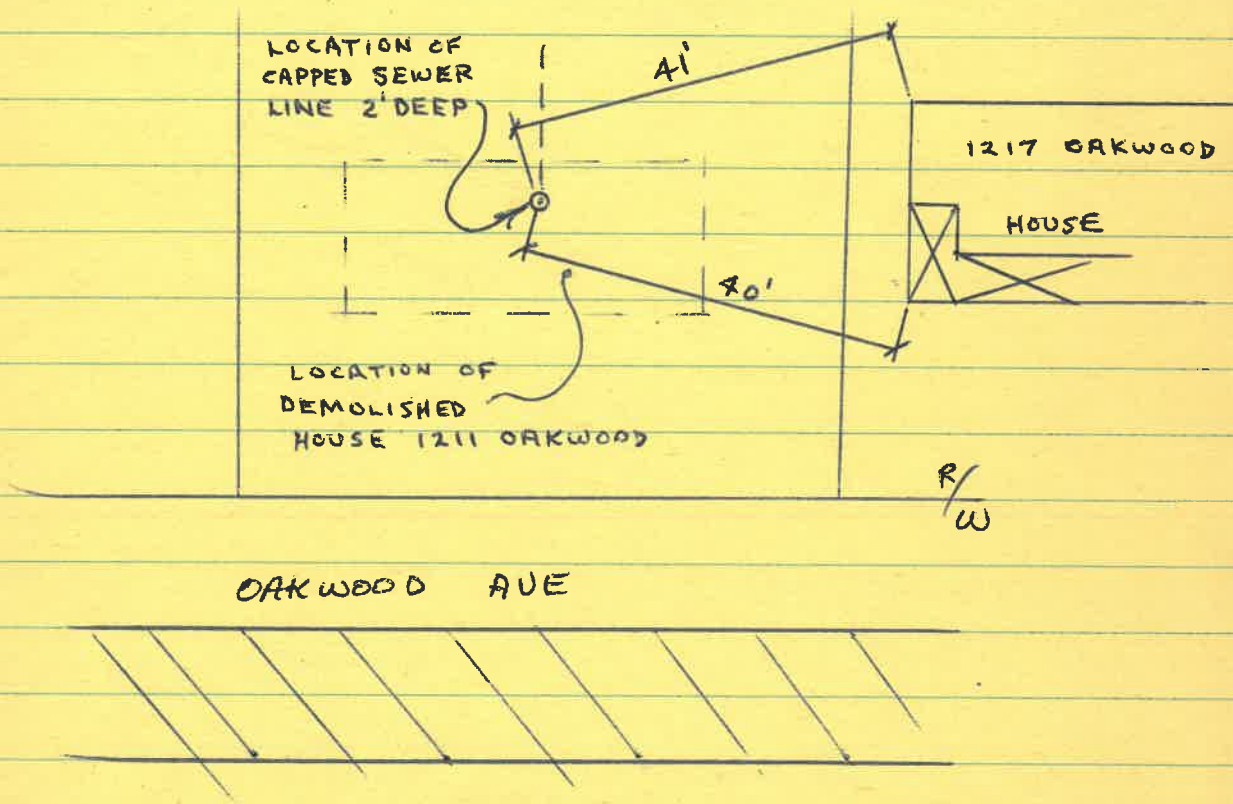 LOCATION OF
CAPPED SEWER
LINE 2' DEEP
41'
1217 OAKWOOD
HOUSE
40'
LOCATION OF
DEMOLISHED
HOUSE 1211 OAKWOOD
R/W
OAKWOOD AVE